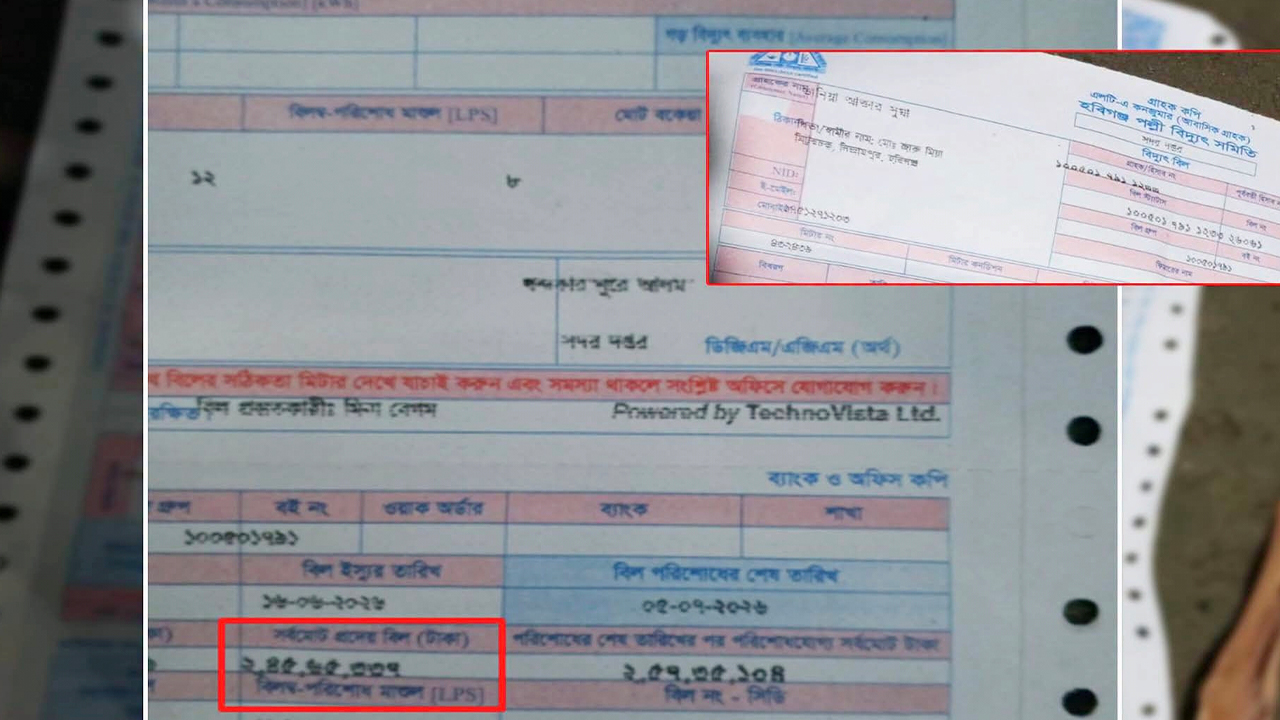 গড় বিদ্যুৎ ব্যবহার [Average Consumption]
বিলম্ব-পরিশোধ মাশুল [LPS]
মোট বকেয়া
১২
৮
সদর দপ্তর
ডিজিএম/এজিএম (অর্থ)
বিলের সঠিকতা মিটার দেখে যাচাই করুন এবং সমস্যা থাকলে সংশ্লিষ্ট অফিসে যোগাযোগ করুন।
বিল প্রস্তুতকারী: মিনা বেগম
Powered by TechnoVista Ltd.
ব্যাংক ও অফিস কপি
গ্রুপ
বই নং
ওয়াক অর্ডার
ব্যাংক
শাখা
১০০৫০১৭৯১
বিল ইস্যুর তারিখ
বিল পরিশোধের শেষ তারিখ
১৬-০৬-২০২৬
০৫-০৭-২০২৬
সর্বমোট প্রদেয় বিল (টাকা)
পরিশোধের শেষ তারিখের পর পরিশোধযোগ্য সর্বমোট টাকা
২,৪৫,৬৫,৩৩৭
২,৫৭,৩৫,১০৪
বিলম্ব-পরিশোধ মাশুল [LPS]
বিল নং - সিডি
গ্রাহকের নাম
তানিয়া আক্তার সুমা
পিতা/স্বামীর নাম: মোঃ জারু মিয়া
NID:
ই-মেইল:
মিটার নং
৪৩২৪৩৬
বিবরণ
মিটার কনডিশন
গ্রাহক কপি
এলটি-এ কনজুমার (আবাসিক গ্রাহক)
হবিগঞ্জ পল্লী বিদ্যুৎ সমিতি
সদর দপ্তর
বিদ্যুৎ বিল
গ্রাহক/হিসাব নং
১০০৫০১ ৭৯১ ১২৩৩
বিল নং
১০০৫০১ ৭৯১ ১২৩৩ ২৬০৬১
বিল গ্রুপ
বই নং
১০০৫০১৭৯১